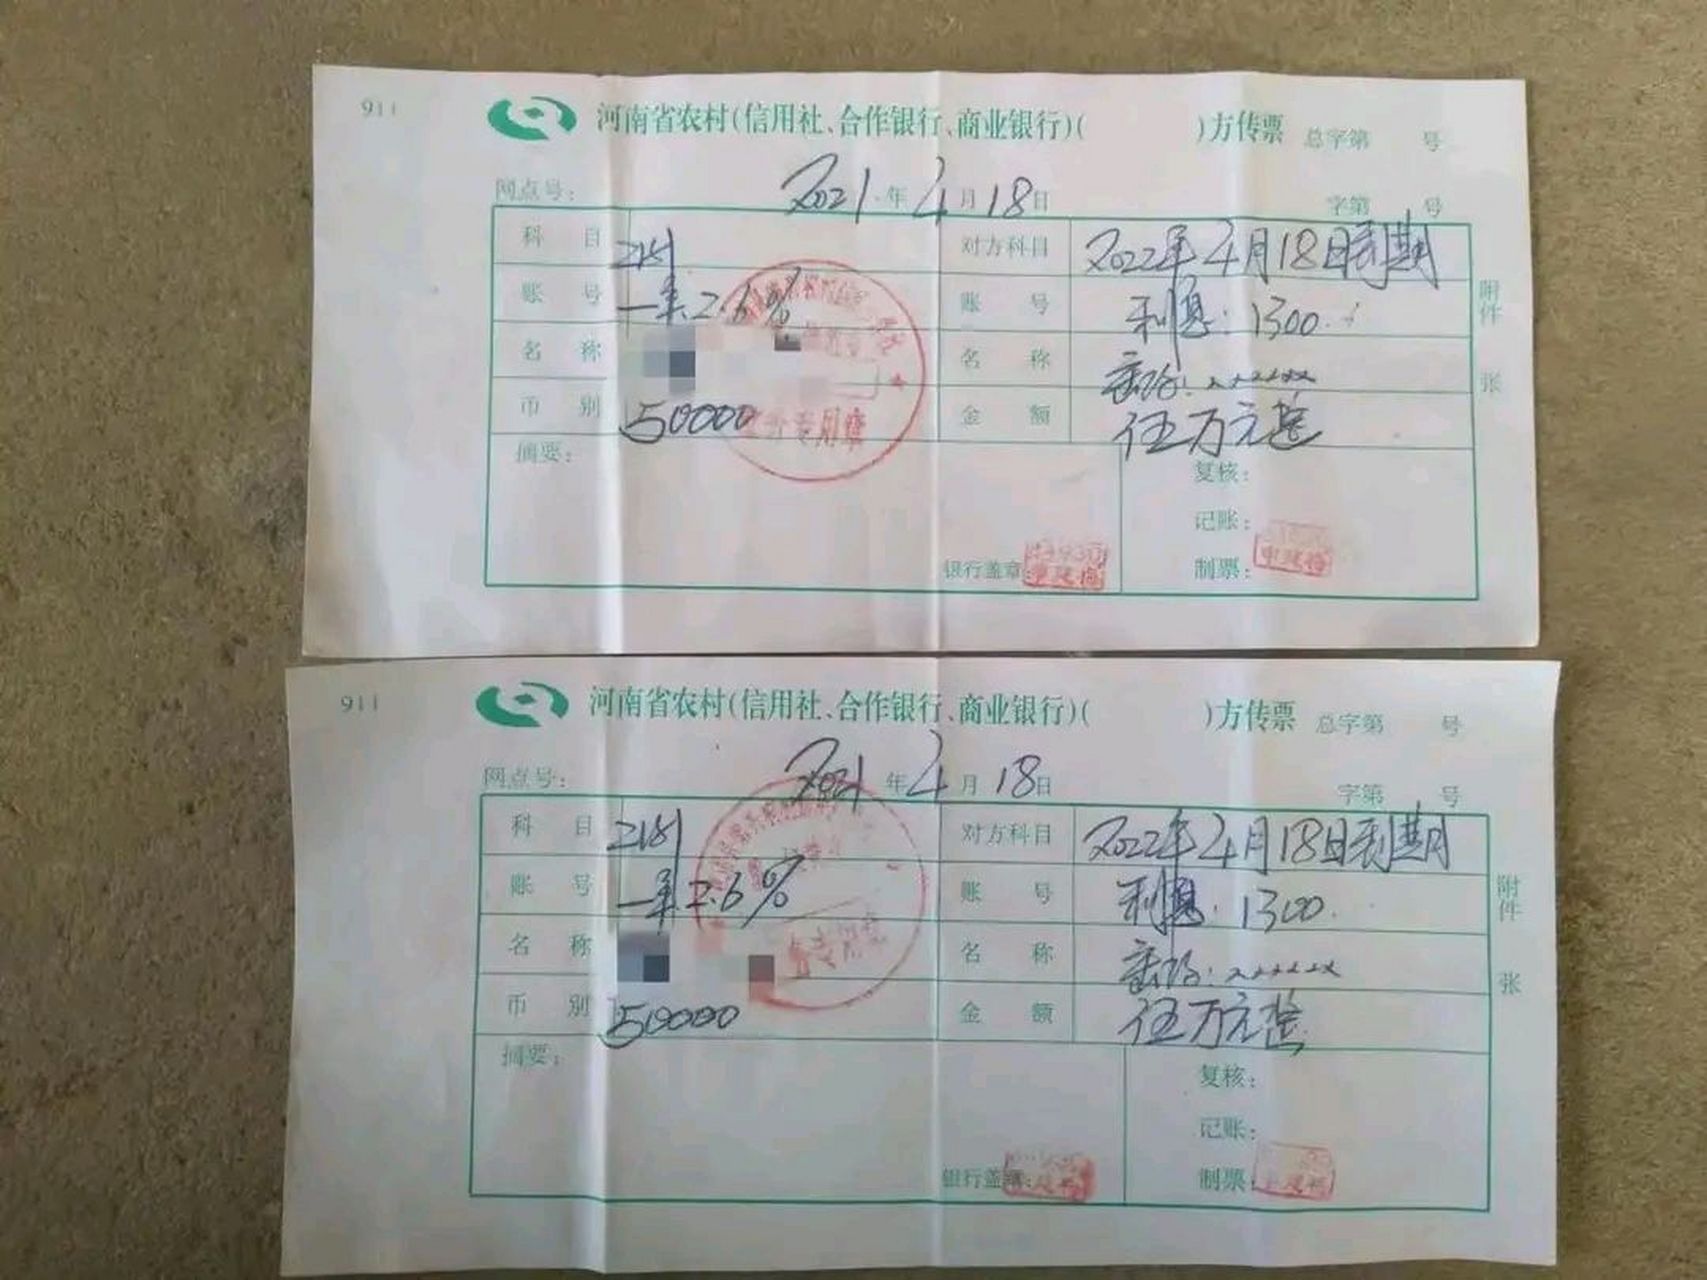 911
河南省农村(信用社、合作银行、商业银行)( )方传票 总字第 号
网点号: 2021年4月18日 字第 号
科目 2151 对方科目 2022年4月18日到期
账号 一年2.6% 账号 利息:1300.
名称 名称 密码:xxxxxx
币别 50000 金额 伍万元整
附件 张
专用章
摘要: 复核:
记账:
银行盖章: 制票: 申建梅
911
河南省农村(信用社、合作银行、商业银行)( )方传票 总字第 号
网点号: 2021年4月18日 字第 号
科目 2151 对方科目 2022年4月18日到期
账号 一年2.6% 账号 利息:1300.
名称 名称 密码:xxxxxx
币别 50000 金额 伍万元整
附件 张
摘要: 复核:
记账:
银行盖章: 制票: